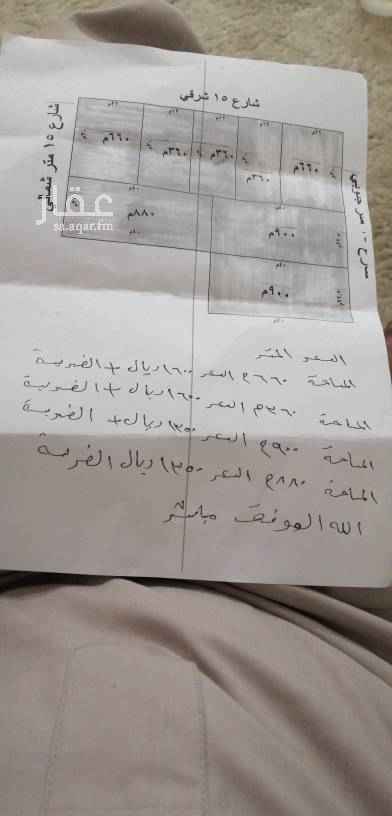 شارع ١٥ شرقي
شارع ١٥ متر شمالي
٦٦٠م
٣٦٠م
٣٦٠م
٣٦٠م
٦٦٠م
٨٨٠م
٩٠٠م
٩٠٠م
عقار
sa.aqar.fm
السعر المتر
المساحة ٦٦٠م السعر ١٦٠٠ ريال + الضريبة
المساحة ٣٦٠م السعر ١٦٠٠ ريال + الضريبة
المساحة ٩٠٠م السعر ١٣٥٠ ريال + الضريبة
المساحة ٨٨٠م السعر ١٣٥٠ ريال الضريبة
الله الموفق مباشر